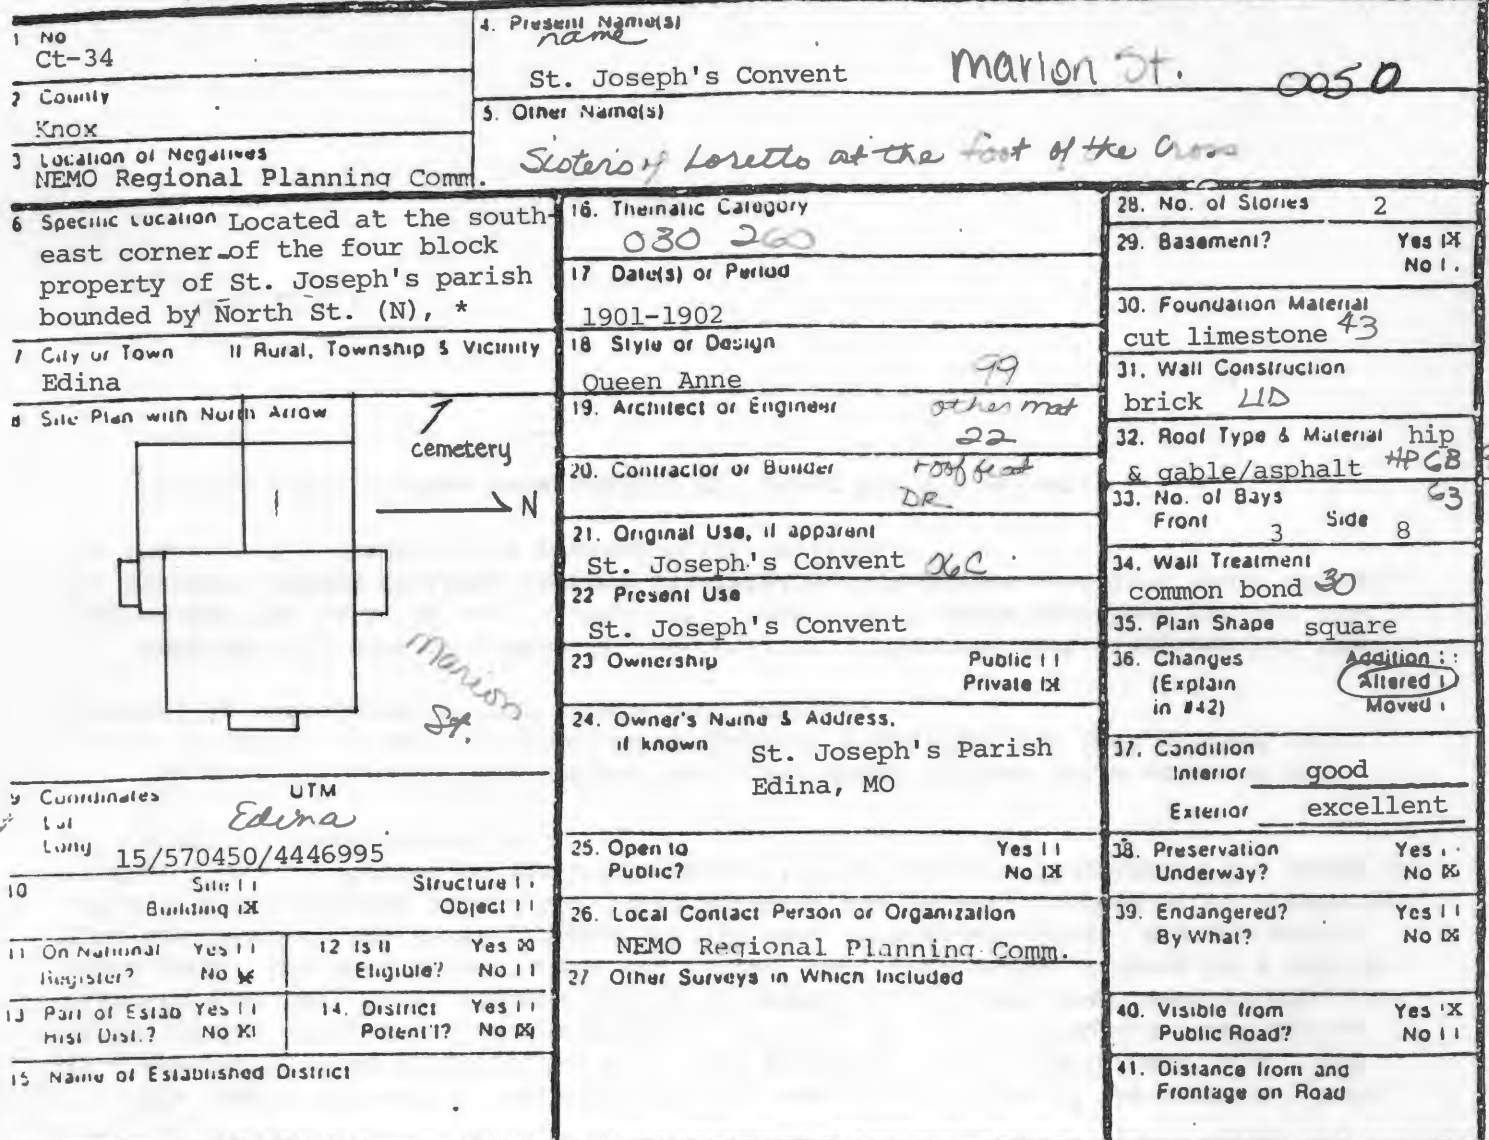 1 No
Ct-34
2 County
Knox
3 Location of Negatives
NEMO Regional Planning Comm.
4. Present Name(s)
name
St. Joseph's Convent
Marion St.
0050
5. Other Name(s)
Sisters of Loretto at the foot of the Cross
6 Specific Location Located at the south-
east corner of the four block
property of St. Joseph's parish
bounded by North St. (N), *
7 City or Town If Rural, Township & Vicinity
Edina
8 Site Plan with North Arrow
cemetery
N
Marion
St.
9 Coordinates UTM
Lat
Edina
Long
15/570450/4446995
10 Site Structure
Building X Object
11 On National Register? Yes No X
12 Is It Eligible? Yes X No
13 Part of Estab Hist Dist.? Yes No X
14. District Potent'l? Yes No X
15 Name of Established District
16. Thematic Category
030 260
17 Date(s) or Period
1901-1902
18 Style or Design
Queen Anne 99
19. Architect or Engineer
other mat
22
20. Contractor or Builder
roof feat
DR
21. Original Use, if apparent
St. Joseph's Convent 06C
22 Present Use
St. Joseph's Convent
23 Ownership Public
Private X
24. Owner's Name & Address,
if known St. Joseph's Parish
Edina, MO
25. Open to Yes
Public? No X
26. Local Contact Person or Organization
NEMO Regional Planning Comm.
27 Other Surveys in Which Included
28. No. of Stories 2
29. Basement? Yes X
No
30. Foundation Material
cut limestone 43
31. Wall Construction
brick
32. Roof Type & Material hip
& gable/asphalt HPGB
63
33. No. of Bays
Front 3 Side 8
34. Wall Treatment
common bond 30
35. Plan Shape square
36. Changes Addition
(Explain Altered
in #42) Moved
37. Condition
Interior good
Exterior excellent
38. Preservation Yes
Underway? No X
39. Endangered? Yes
By What? No X
40. Visible from Yes X
Public Road? No
41. Distance from and
Frontage on Road